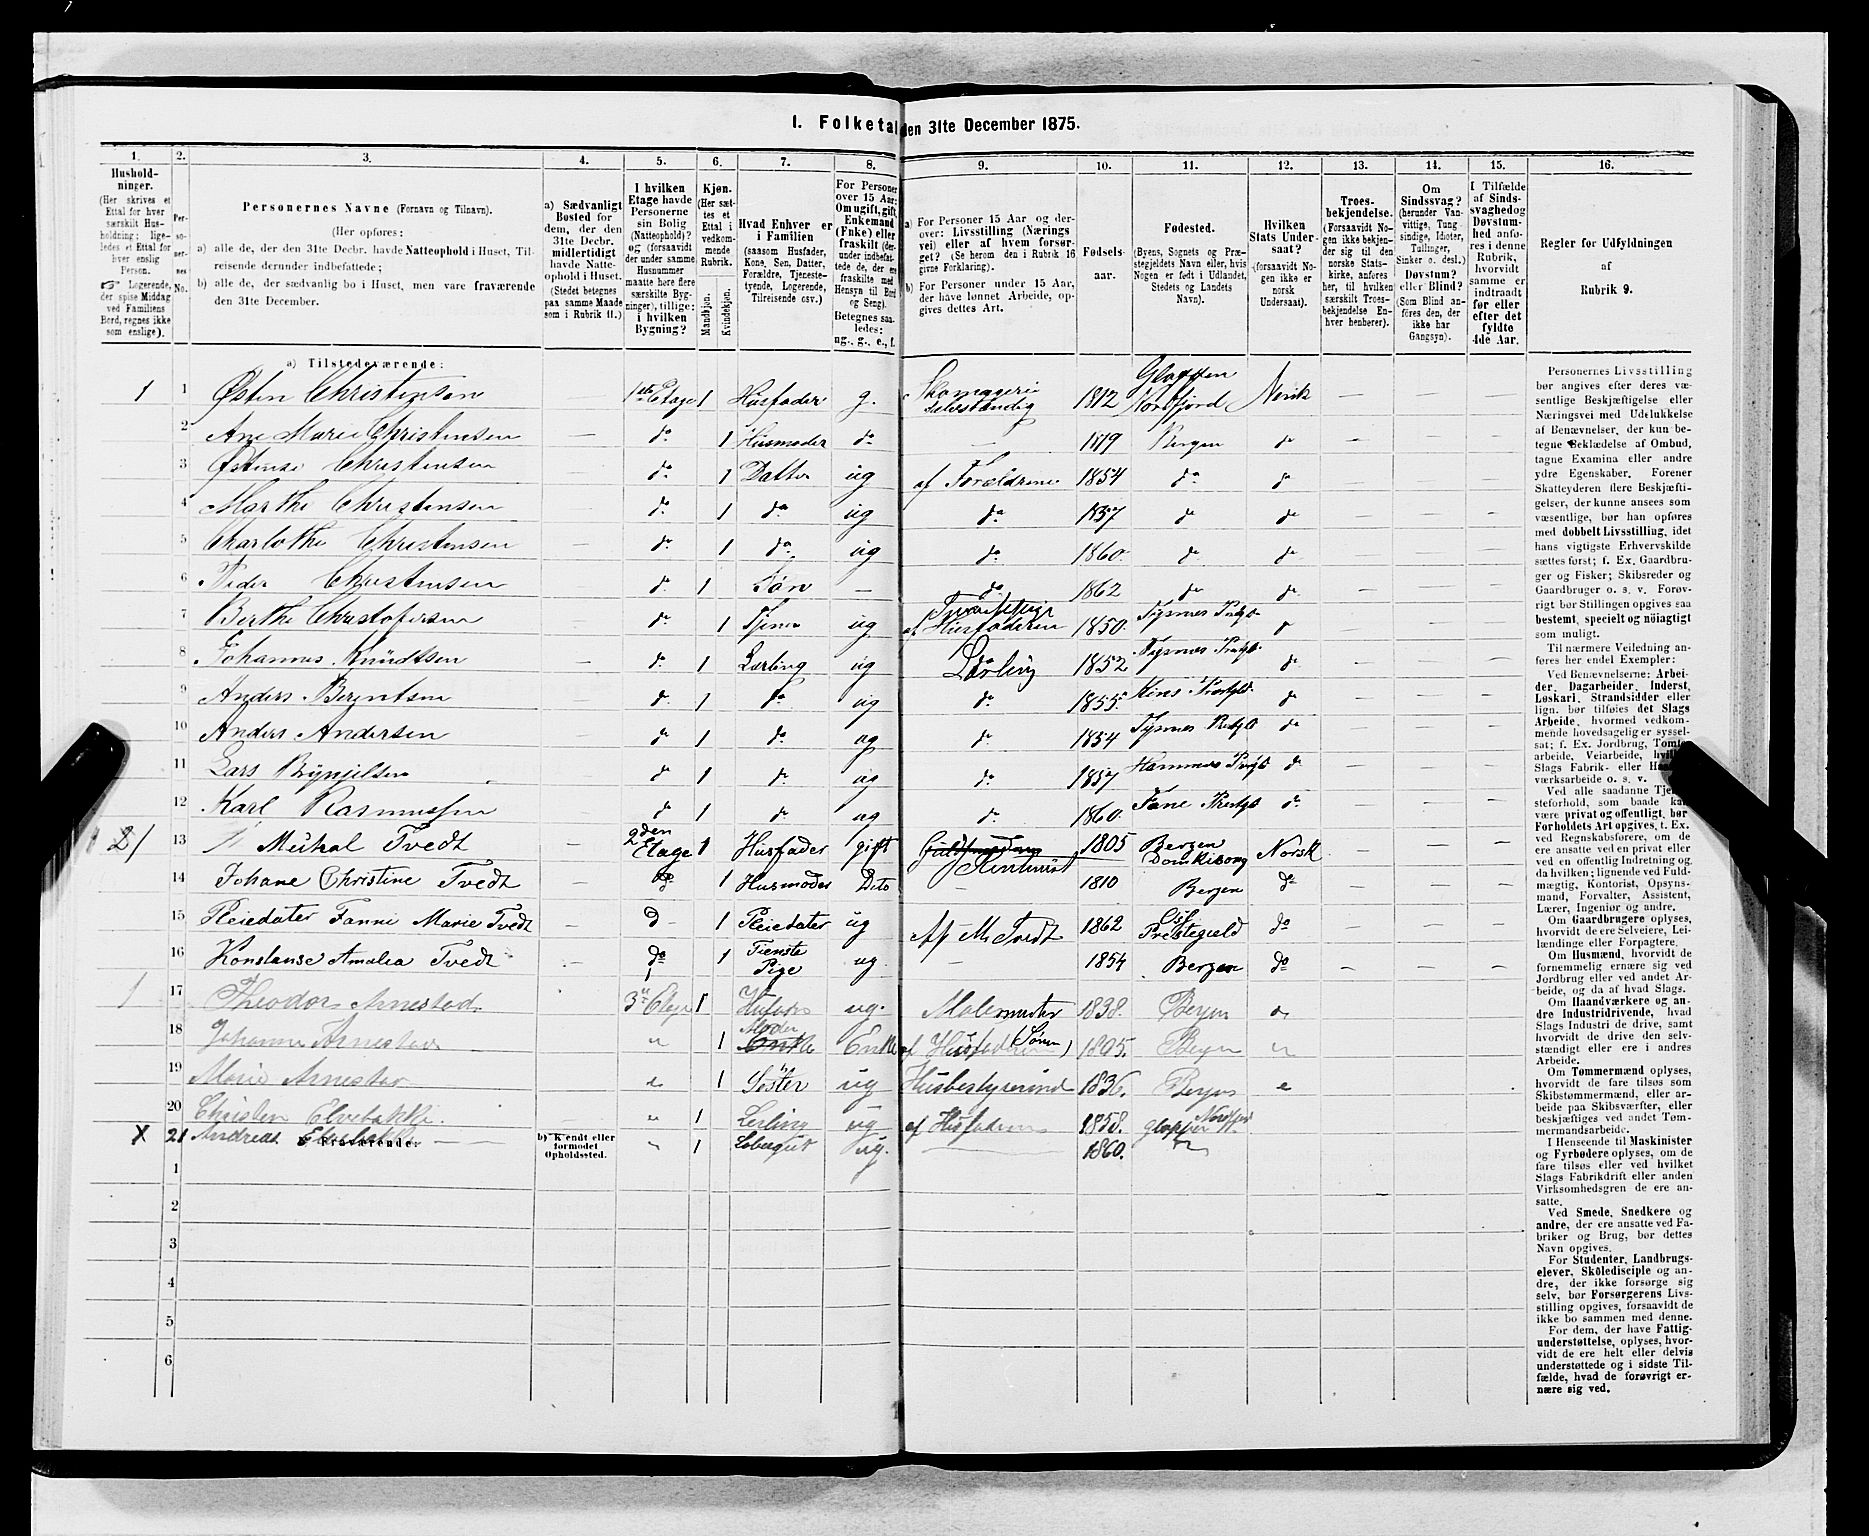 I. Folketal den 31te December 1875.
1. 2. 3. 4. 5. 6. 7. 8. 9. 10. 11. 12. 13. 14. 15. 16.
Hushold-
ninger.
(Her skrives et
Ettal for hver
særskilt Hus-
holdning; lige-
ledes et Ettal for
hver enslig
Person.
☞ Logerende,
der spise Middag
ved Familiens
Bord, regnes ikke
som enslige).
Per-
so-
ner-
nes
No.
Personernes Navne (Fornavn og Tilnavn).
(Her opføres:
a) alle de, der den 31te Decbr. havde Natteophold i Huset, Til-
reisende derunder indbefattede;
b) alle de, der sædvanlig bo i Huset, men vare fraværende
den 31te December.
a) Sædvanligt
Bosted for
dem, der den
31te Decbr.
midlertidigt
havde Natte-
ophold i Huset.
(Stedet betegnes
paa samme Maade
som i Rubrik 11.)
I hvilken
Etage havde
Personerne
sin Bolig
(Natteophold)?
og (forsaavidt
der under samme
Husnummer
maatte høre flere
særskilte Byg-
ninger), tillige:
i hvilken
Bygning?
Kjøn.
(Her sæt-
tes et
Ettal i
vedkom-
mende
Rubrik.
Mandkjøn.
Kvindekjøn.
Hvad Enhver er
i Familien
(saasom Husfader,
Kone, Søn, Datter,
Forældre, Tjeneste-
tyende, Logerende,
Tilreisende osv.)
For Personer
over 15 Aar:
Om ugift, gift,
Enkemand
(Enke) eller
fraskilt (der-
under indbefat-
tede de, der ere
fraskilte med
Hensyn til Bord
og Seng).
Betegnes saa-
ledes:
ug., g., e., f.
a) For Personer 15 Aar og der-
over: Livsstilling (Nærings
vei) eller af hvem forsør-
get? (Se herom den i Rubrik 16
givne Forklaring).
b) For Personer under 15 Aar,
der have lønnet Arbeide, op-
gives dettes Art.
Fødsels-
aar.
Fødested.
(Byens, Sognets og Præ-
stegjeldets Navn eller, hvis
Nogen er født i Udlandet,
Stedets og Landets
Navn).
Hvilken
Stats Under-
saat?
(forsaavidt No-
gen ikke er
norsk
Undersaat).
Troes-
bekjendelse.
(Forsaavidt No-
gen ikke bekjen-
der sig til den
norske Stats-
kirke, anføres
her, til hvilken
særskilt Troes-
bekjendelse En-
hver henhører).
Om
Sindssvag?
(herunder Van-
vittige, Tung-
sindige, Idioter,
Tullinger,
Sinker o. desl.)
Døvstum?
eller Blind?
(Som Blind an-
føres den, der
ikke har
Gangsyn).
I Tilfælde
af Sinds-
svaghed og
Døvstum-
hed anfø-
res i denne
Rubrik,
hvorvidt
samme er
indtraadt
før eller
efter det
fyldte
4de Aar.
Regler for Udfyldningen
af
Rubrik 9.
a) Tilstedeværende:
1 1 Østen Christensen 1ste Etage 1 Husfader g. Skomageri selvstændig 1812 Gloppen Nordfjord Norsk
2 Ane Marie Christensen do 1 Husmoder do 1819 Bergen do
3 Østense Christensen do 1 Datter ug af Forældrene 1854 do do
4 Marthe Christensen do 1 do ug do 1857 do do
5 Charlothe Christensen do 1 do ug do 1860. do do
6 Peder Christensen do 1 Søn do 1862 do do
7 Berthe Christofersen do 1 Tjener ug af Husfaderen 1850. Tysnes do
8 Johannes Knudtsen do 1 Lærling ug Lærling 1852 Tysnes do
9 Anders Berentsen do 1 do ug do 1855 Kins do
10 Anders Andersen do 1 do ug do 1854 Tysnes do
11 Lars Brynjelsen do 1 do ug do 1857 Hammer do
12 Karl Rasmussen do 1 do ug do 1860. Fane do
2 13 Mikal Tvedt 2den Etage 1 Husfader gift 1805 Bergen Domkisong Norsk
14 Johane Christine Tvedt do 1 Husmoder Dito 1810 Bergen do
15 Pleiedater Fanni Marie Tvedt d 1 Pleiedater ug Af M Tvedt 1862 Prestegield do
16 Konstanse Amalia Tvedt do 1 Tieneste Pige ug 1854 Bergen do
1 17 Theodor Arnestad 3 Etage 1 Husfader ug. Malermester 1838. Bergen
18 Johanne Arnestad 1 Moder Enke Enke af Husfaderen (Sønnen) 1805. Bergen
19 Marie Arnestad 1 Søster ug Husbestyrerinde 1836. Bergen
20 Christen Elvebakke 1 Lerling ug af Husfaderen 1858. Gloppen Nordfjord
X 21 Andreas Elvebakke 1 Løbegut ug. 1860.
b) Fraværende:
b) Kjendt eller
formodet
Opholdssted.
1
2
3
4
5
6
Personernes Livsstilling
bør angives efter deres væ-
sentlige Beskjæftigelse eller
Næringsvei med Udelukkelse
af Benævnelser, der kun be-
tegne Beklædelse af Ombud,
tagne Examina eller andre
ydre Egenskaber. Forener
Skatteyderen flere Beskjæfti-
gelser, der kunne ansees som
væsentlige, bør han opføres
med dobbelt Livsstilling, idet
hans vigtigste Erhvervskilde
sættes først; f. Ex. Gaardbru-
ger og Fisker; Skibsreder og
Gaardbruger o. s. v. Forøv-
rigt bør Stillingen opgives saa
bestemt, specielt og nøiagtigt
som muligt.
Til nærmere Veiledning an-
føres her endel Exempler:
Ved Benævnelserne: Arbei-
der, Dagarbeider, Inderst,
Løskarl, Strandsidder eller
lign. bør tilføies det Slags
Arbeide, hvormed vedkom-
mende hovedsagelig er syssel-
sat; f. Ex. Jordbrug, Tomte-
arbeide, Veiarbeide, hvilket
Slags Fabrik- eller Haand-
værksarbeide o. s. v.
Ved alle saadanne Tjene-
steforhold, som baade kan
være privat og offentligt, bør
Forholdets Art opgives, f. Ex.
ved Regnskabsførere, om de
ere ansatte ved en privat eller
ved en offentlig Indretning og
da hvilken; lignende ved Fuld-
mægtig, Kontorist, Opsyns-
mand, Forvalter, Assistent,
Lærer, Ingeniør og andre.
Om Gaardbrugere oplyses,
hvorvidt de ere Selveiere, Lei-
lændinge eller Forpagtere.
Om Husmænd, hvorvidt de
fornemmelig ernære sig ved
Jordbrug eller ved andet Ar-
beide, og da af hvad Slags.
Om Haandværkere og an-
dre Industridrivende, hvad
Slags Industri de drive, samt
hvorvidt de drive den selv-
stændigt eller ere i andres
Arbeide.
Om Tømmermænd oplyses,
hvorvidt de fare tilsøs som
Skibstømmermænd, eller ar-
beide paa Skibsværfter, eller
beskjæftiges ved andet Tøm-
mermandsarbeide.
I Henseende til Maskinister
og Fyrbødere oplyses, om de
fare tilsøs eller ved hvilket
Slags Fabrikdrift eller anden
Virksomhedsgren de ere an-
satte.
Ved Smede, Snedkere og
andre, der ere ansatte ved Fa-
briker og Brug, bør dettes
Navn opgives.
For Studenter, Landbrugs-
elever, Skoledisciple og an-
dre, der ikke forsørge sig
selv, bør Forsørgerens Livs-
stilling opgives, forsaavidt de
ikke bo sammen med denne.
For dem, der have Fattig-
understøttelse, oplyses, hvor-
vidt de ere helt eller delvis
understøttede og i sidste Til-
fælde, hvad de forøvrigt er-
nære sig ved.